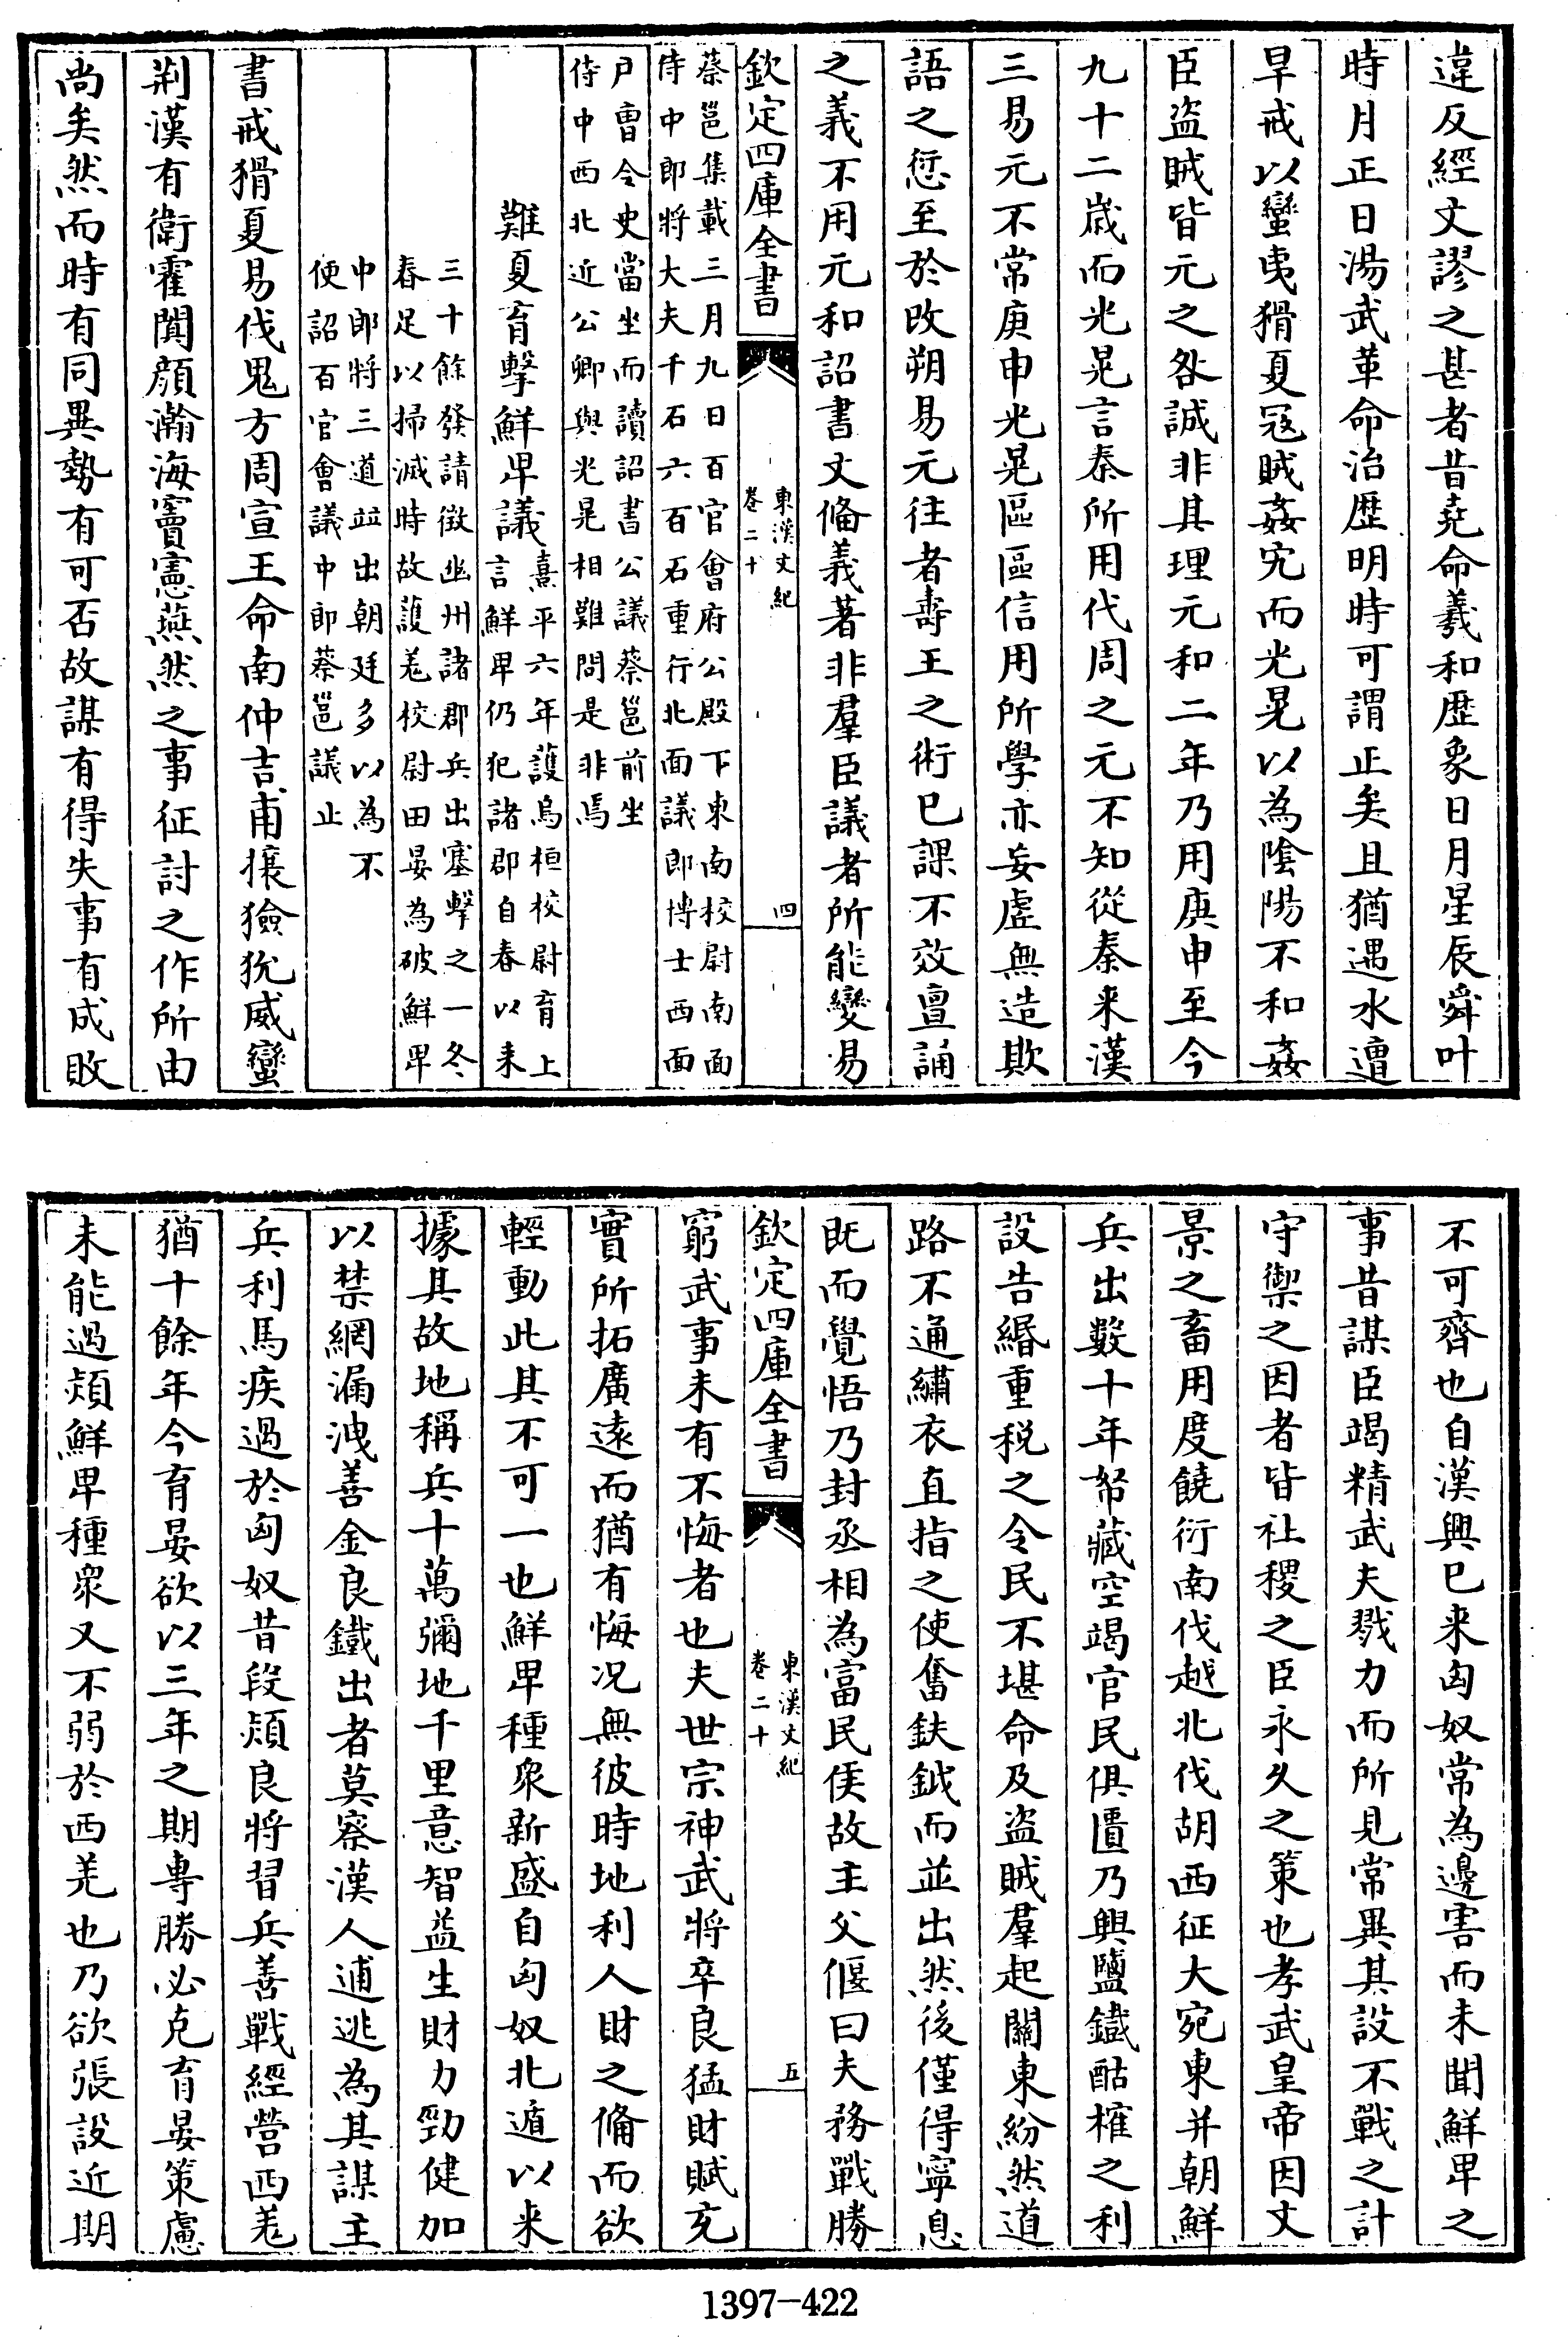 違反經文謬之甚者昔堯命羲和歷象日月星辰舜叶
時月正日湯武革命治歷明時可謂正矣且猶遇水遭
旱戒以蠻夷猾夏寇賊姦宄而光晃以為陰陽不和姦
臣盜賊皆元之咎誠非其理元和二年乃用庚申至今
九十二歲而光晃言秦所用代周之元不知從秦来漢
三易元不常庚申光晃區區信用所學亦妄虛無造欺
語之愆至於改朔易元往者壽王之術已課不效亶誦
之義不用元和詔書文備義著非羣臣議者所能變易
欽定四庫全書
東漢文紀
卷二十
四
蔡邕集載三月九日百官會府公殿下東南校尉南面
侍中郎將大夫千石六百石重行北面議郎博士西面
戶曹令史當坐而讀詔書公議蔡邕前坐
侍中西北近公卿與光晃相難問是非焉
難夏育擊鮮卑議
熹平六年護烏桓校尉育上
言鮮卑仍犯諸郡自春以来
三十餘發請徵幽州諸郡兵出塞擊之一冬
春足以掃滅時故護羌校尉田晏為破鮮卑
中郎將三道竝出朝廷多以為不
使詔百官會議中郎蔡邕議止
書戒猾夏易伐鬼方周宣王命南仲吉甫攘獫狁威蠻
荆漢有衛霍闐顔瀚海竇憲燕然之事征討之作所由
尚矣然而時有同異勢有可否故謀有得失事有成敗
不可齊也自漢興已来匈奴常為邊害而未聞鮮卑之
事昔謀臣竭精武夫戮力而所見常異其設不戰之計
守禦之因者皆社稷之臣永久之策也孝武皇帝因文
景之畜用度饒衍南伐越北伐胡西征大宛東并朝鮮
兵出數十年帑藏空竭官民俱匱乃興鹽鐵酤榷之利
設告緡重稅之令民不堪命及盜賊羣起關東紛然道
路不通繡衣直指之使奮鈇鉞而並出然後僅得寧息
既而覺悟乃封丞相為富民侯故主父偃曰夫務戰勝
欽定四庫全書
東漢文紀
卷二十
五
窮武事未有不悔者也夫世宗神武將卒良猛財賦充
實所拓廣遠而猶有悔况無彼時地利人財之備而欲
輕動此其不可一也鮮卑種衆新盛自匈奴北遁以来
據其故地稱兵十萬彌地千里意智益生財力勁健加
以禁網漏洩善金良鐵出者莫察漢人逋逃為其謀主
兵利馬疾過於匈奴昔段熲良將習兵善戰經營西羌
猶十餘年今育晏欲以三年之期專勝必克育晏策慮
未能過熲鮮卑種衆又不弱於西羌也乃欲張設近期
1397-422